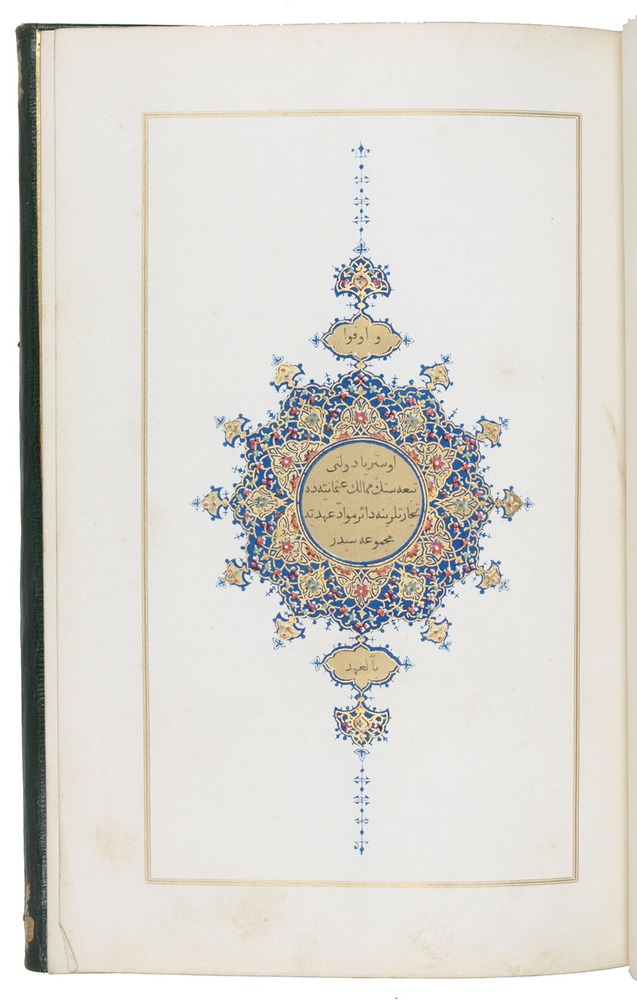 و اوفوا
اوستريا دولتى
تبعه سنك ممالك عثمانيه ده
تجارتلرينه دائر مواد عهدته
مجموعه سيدر
بالعهد